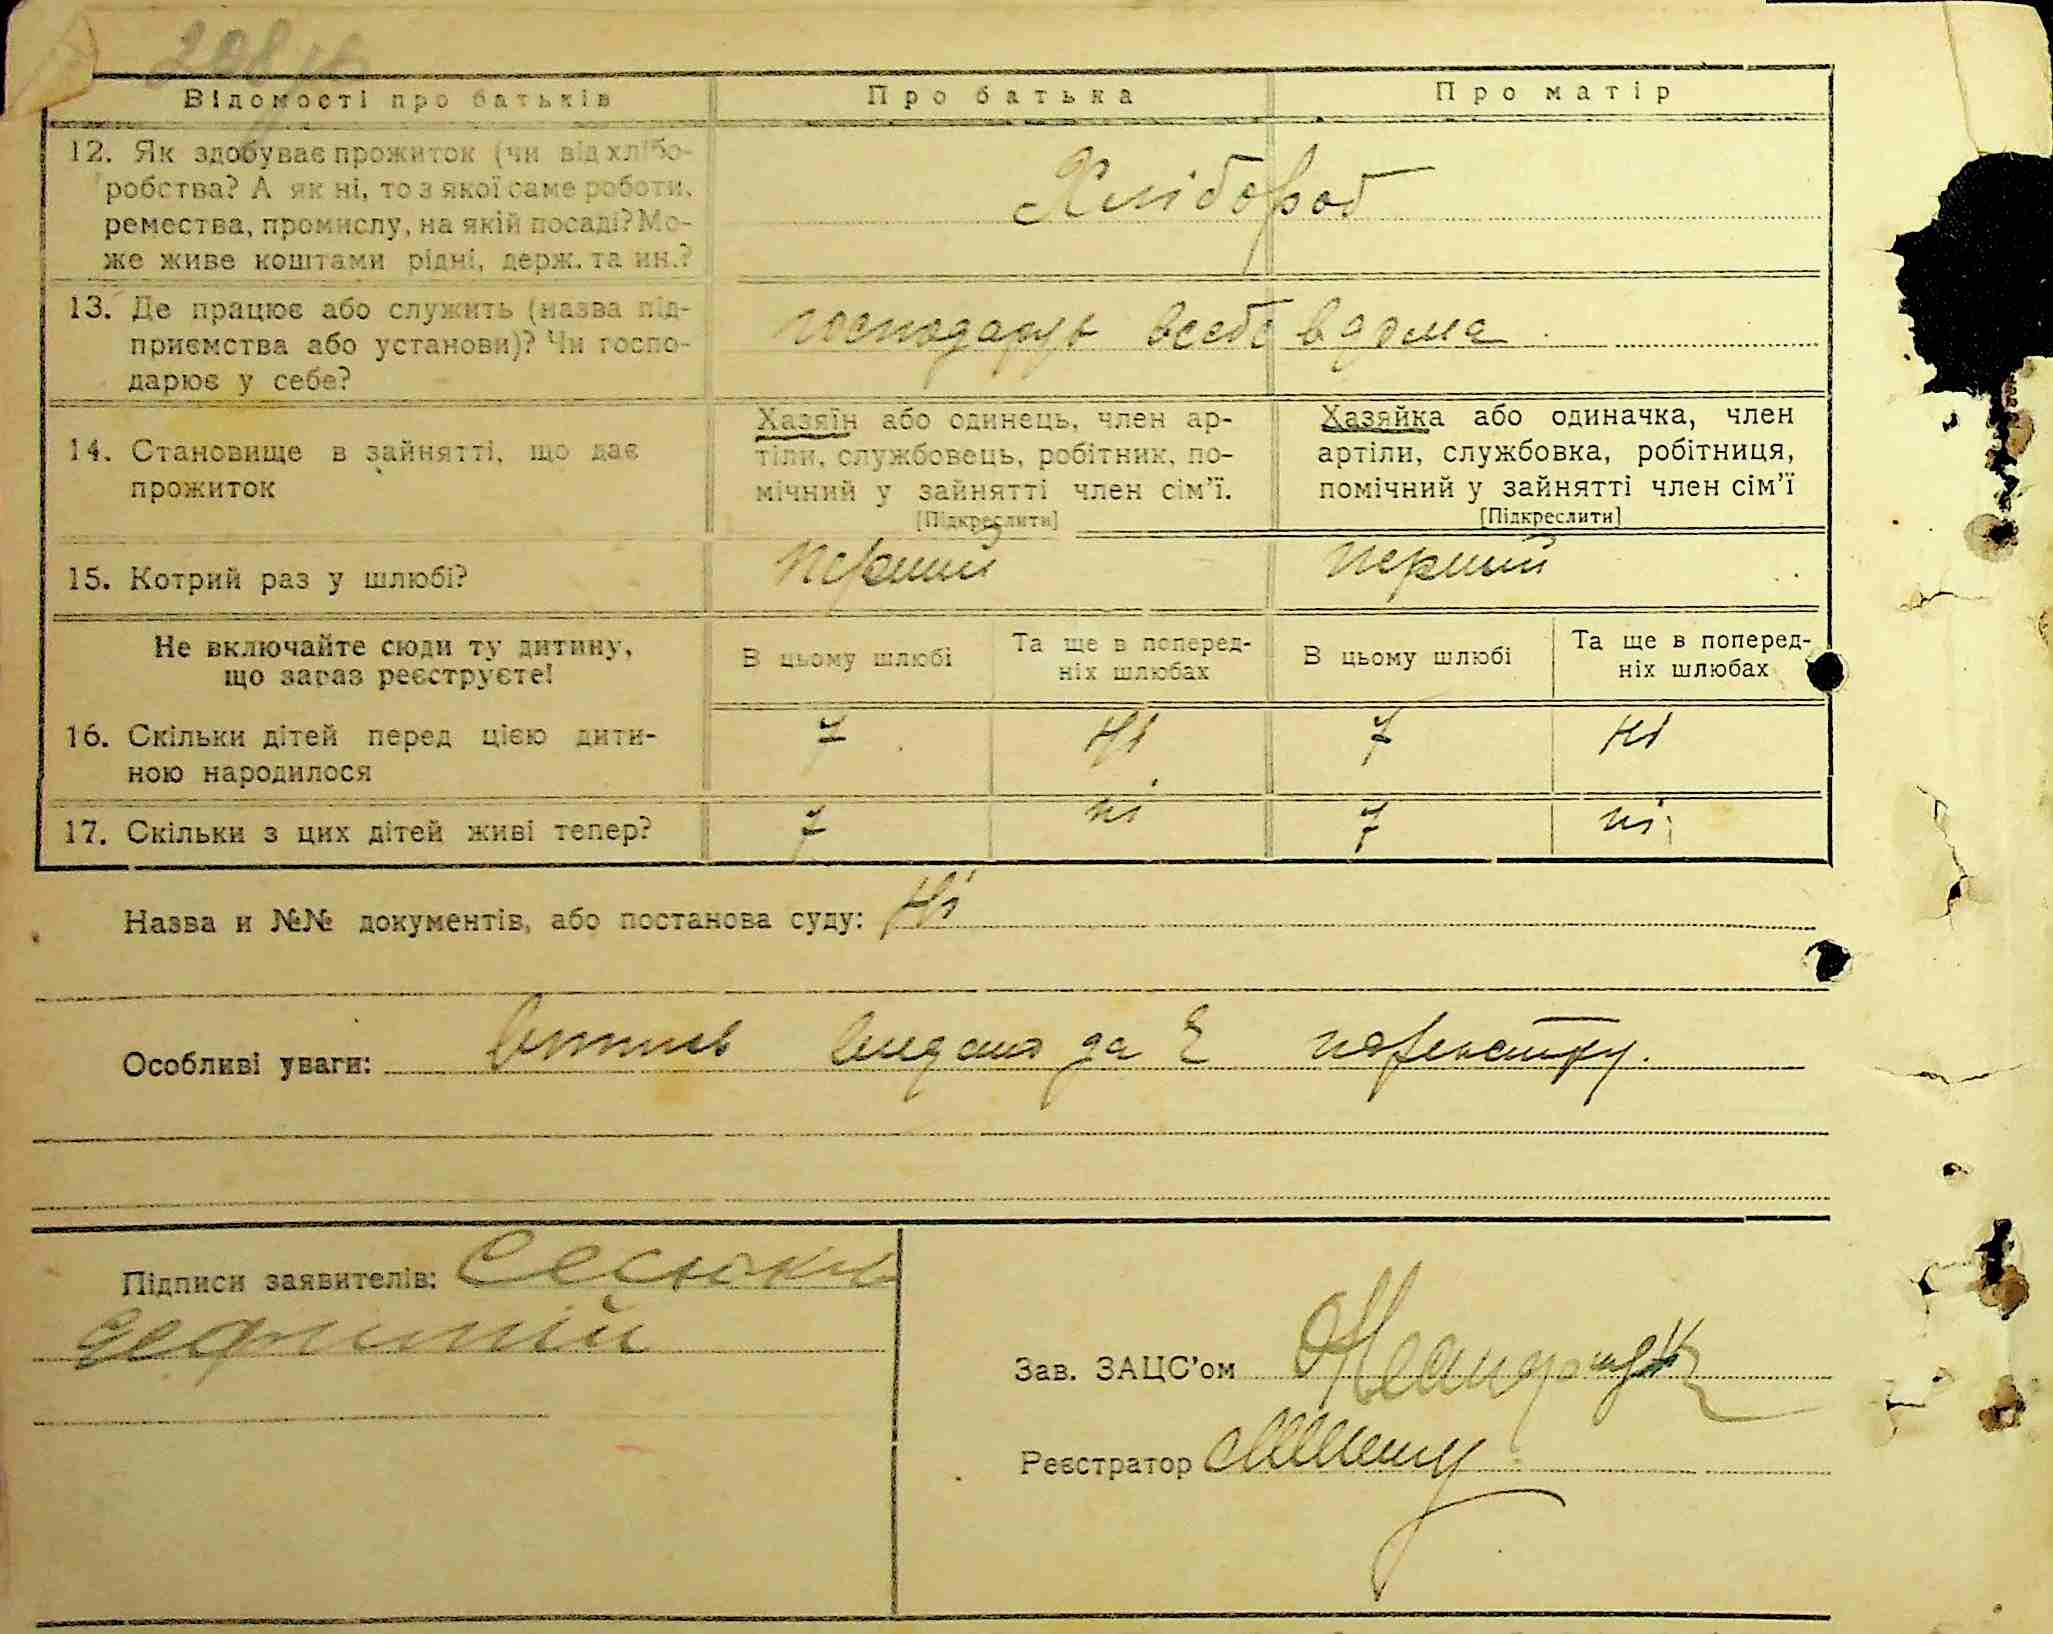 Відомості про батьків
Про батька
Про матір
12. Як здобуває прожиток (чи від хлібо-
робства? А як ні, то з якої саме роботи,
ремества, промислу, на якій посаді? Мо-
же живе коштами рідні, держ. та ин.?
Хлібороб
13. Де працює або служить (назва під-
приємства або установи)? Чи госпо-
дарює у себе?
господарує всебе вдома
14. Становище в зайнятті, що дає
прожиток
Хазяїн або одинець, член ар-
тіли, службовець, робітник, по-
мічний у зайнятті член сім'ї.
[Підкреслити]
Хазяйка або одиначка, член
артіли, службовка, робітниця,
помічний у зайнятті член сім'ї
[Підкреслити]
15. Котрий раз у шлюбі?
Перший
перший
Не включайте сюди ту дитину,
що зараз реєструєте!
В цьому шлюбі
Та ще в поперед-
ніх шлюбах
В цьому шлюбі
Та ще в поперед-
ніх шлюбах
16. Скільки дітей перед цією дити-
ною народилося
7
Ні
7
Ні
17. Скільки з цих дітей живі тепер?
7
ні
7
ні
Назва и №№ документів, або постанова суду: Ні
Особливі уваги: Витяг
Підписи заявителів:
Зав. ЗАЦС'ом
Реєстратор